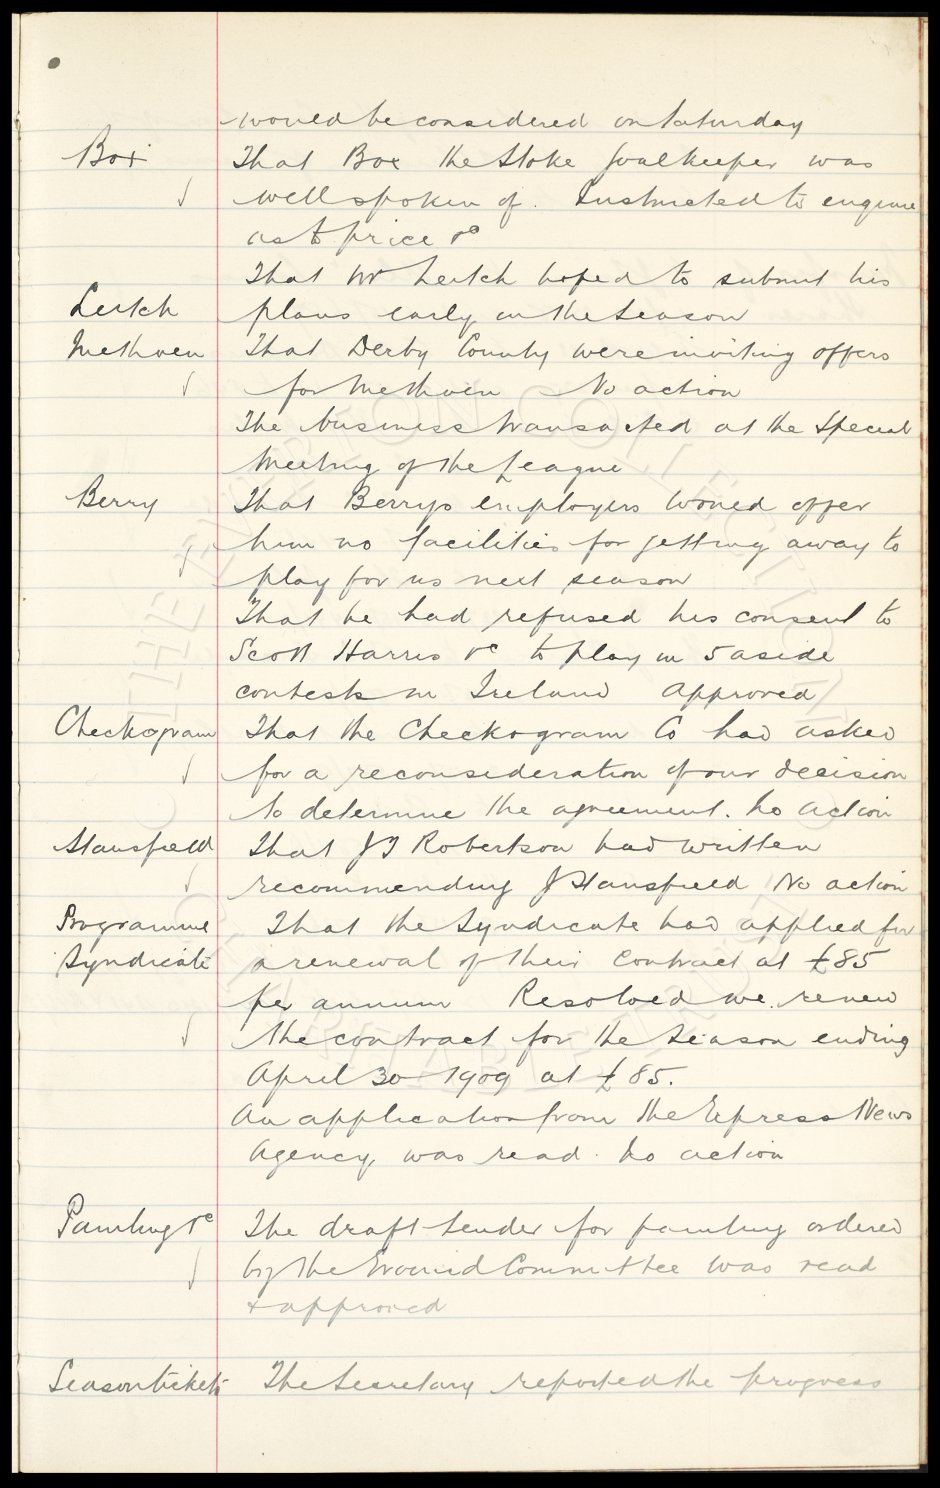 would be considered on Saturday
Box That Box the Stoke Goalkeeper was
well spoken of. Instructed to enquire
as to price &c
That Mr Leitch hoped to submit his
Leitch plans early in the Season
Methven That Derby County were inviting offers
for Methven No action
The business transacted at the Special
Meeting of the League
Berry That Berrys employers would offer
him no facilities for getting away to
play for us next season
That he had refused his consent to
Scott Harris &c to play in 5 aside
contests in Ireland Approved
Checkogram That the Checkogram Co had asked
for a reconsideration of our decision
to determine the agreement. No action
Stansfield That J T Robertson had written
recommending J Stansfield No action
Programme That the Syndicate had applied for
Syndicate a renewal of their contract at £85
per annum Resolved we renew
the contract for the Season ending
April 30 1909 at £85.
An application from the Express News
Agency was read. No action
Painting &c The draft tender for painting ordered
by the Ground Committee was read
& approved
Season tickets The Secretary reported the progress
THE EVERTON COLLECTION
CHARITABLE TRUST